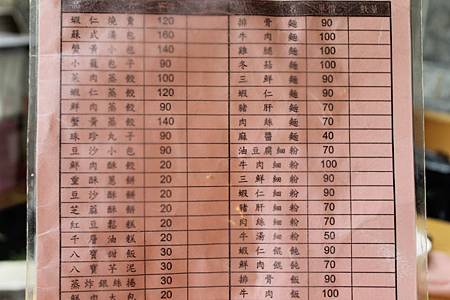 單價 數量
蝦仁燒賣 120
蘇式湯包 160
蟹黃小包 140
小籠包子 90
菜肉蒸餃 100
蝦仁蒸餃 120
鮮肉蒸餃 90
蟹黃蒸餃 140
珍珠丸子 90
豆沙小包 90
鮮肉酥餃 20
重酥蔥餅 20
豆沙酥餅 20
芝蔴酥餅 20
紅豆鬆糕 20
千層油糕 20
八寶甜飯 30
八寶芋泥 30
蒸炸銀絲捲
鮮肉大包
排骨麵 90
牛肉麵 100
雞腿麵 90
冬菇麵 90
三鮮麵 90
蝦仁麵 90
豬肝麵 70
肉絲麵 70
麻醬麵 40
油豆腐細粉 70
牛肉細粉 100
三鮮細粉 90
蝦仁細粉 90
豬肝細粉 70
肉絲細粉 70
牛湯細粉 50
蝦仁餛飩 90
鮮肉餛飩 70
排骨飯 90
牛肉飯 100